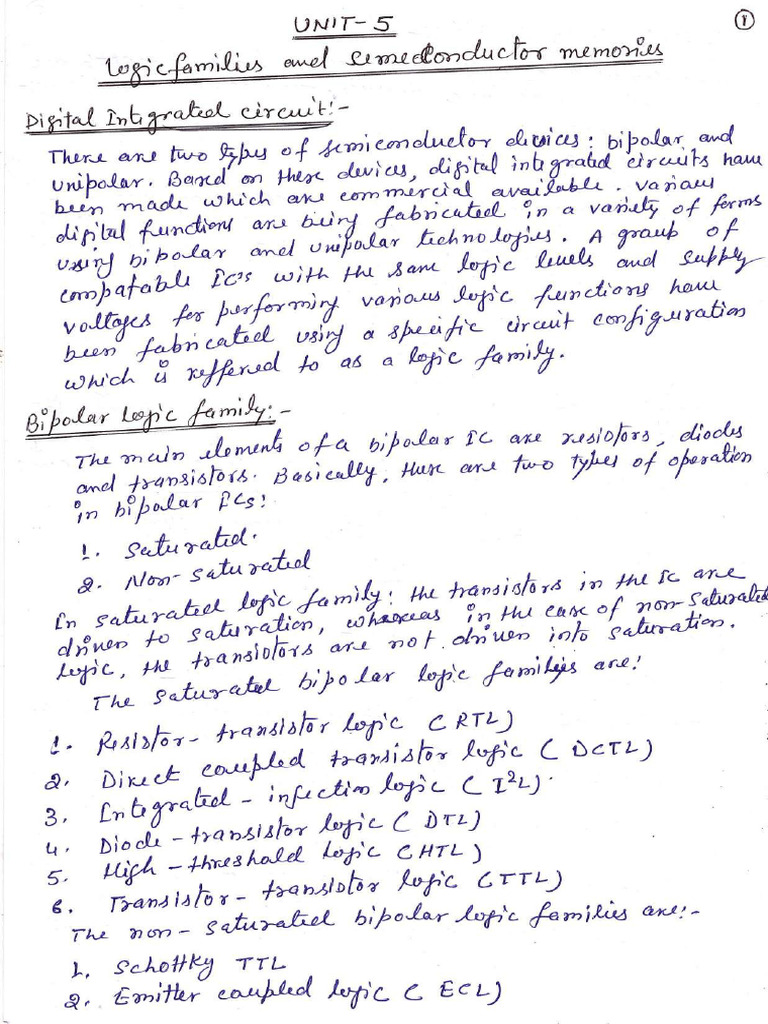 UNIT-5
1
Logic families and semedConductor memories
Digital Integrated circuit:-
There are two types of semiconductor devices: bipolar and
unipolar. Based on these devices, digital integrated circuits have
been made which are commercial available. Various
digital functions are being fabricated in a variety of forms
using bipolar and unipolar technologies. A group of
compatable IC's with the same logic levels and supply
voltages for performing various logic functions have
been fabricated using a specific circuit configuration
which is reffered to as a logic family.
Bipolar Logic family:-
The main elements of a bipolar IC are resistors, diodes
and transistors. Basically, there are two types of operation
in bipolar ICs:
1. Saturated.
2. Non-saturated
In saturated logic family: the transistors in the IC are
driven to saturation, whereas in the case of non-saturated
logic, the transistors are not driven into saturation.
The saturated bipolar logic families are:
1. Resistor-transistor logic (RTL)
2. Direct coupled transistor logic (DCTL)
3. Integrated-injection logic (I²L).
4. Diode-transistor logic (DTL)
5. High-threshold Logic (HTL)
6. Transistor-transistor logic (TTL)
The non-saturated bipolar logic families are:-
1. Schottky TTL
2. Emitter coupled logic (ECL)